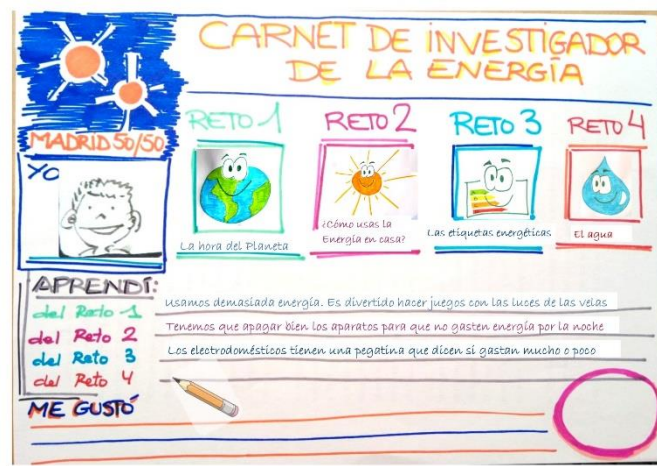 CARNET DE INVESTIGADOR
DE LA ENERGÍA
MADRID 50/50
RETO 1
RETO 2
RETO 3
RETO 4
YO
La hora del Planeta
¿Cómo usas la
Energía en casa?
Las etiquetas energéticas
El agua
APRENDÍ:
del Reto 1
Usamos demasiada energía. Es divertido hacer juegos con las luces de las velas
del Reto 2
Tenemos que apagar bien los aparatos para que no gasten energía por la noche
del Reto 3
Los electrodomésticos tienen una pegatina que dicen si gastan mucho o poco
del Reto 4
ME GUSTÓ